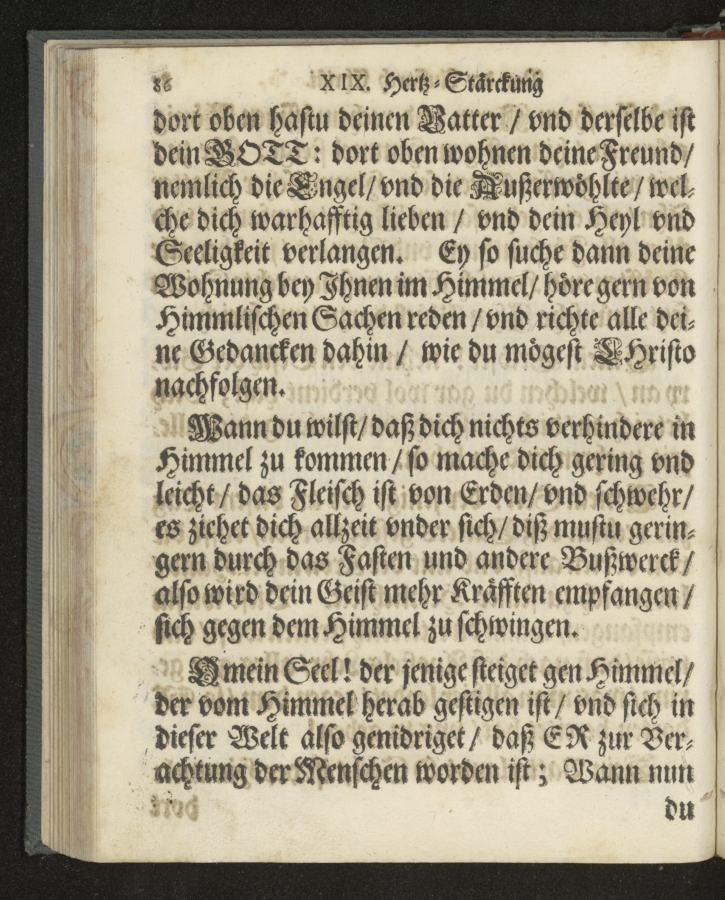 86 XIX. Hertz-Stärckung
dort oben hastu deinen Vatter / vnd derselbe ist
dein GOTT: dort oben wohnen deine Freund/
nemlich die Engel/ vnd die Außerwöhlte / wel-
che dich warhafftig lieben / vnd dein Heyl vnd
Seeligkeit verlangen. Ey so suche dann deine
Wohnung bey Ihnen im Himmel/ höre gern von
Himmlischen Sachen reden / vnd richte alle dei-
ne Gedancken dahin / wie du mögest CHristo
nachfolgen.
Wann du wilst/ daß dich nichts verhindere in
Himmel zu kommen / so mache dich gering vnd
leicht / das Fleisch ist von Erden/ vnd schwehr/
es ziehet dich allzeit vnder sich/ diß mustu gerin-
gern durch das Fasten und andere Bußwerck /
also wird dein Geist mehr Kräfften empfangen /
sich gegen dem Himmel zu schwingen.
O mein Seel! der jenige steiget gen Himmel/
der vom Himmel herab gestigen ist / vnd sich in
dieser Welt also genidriget / daß ER zur Ver-
achtung der Menschen worden ist; Wann nun
du